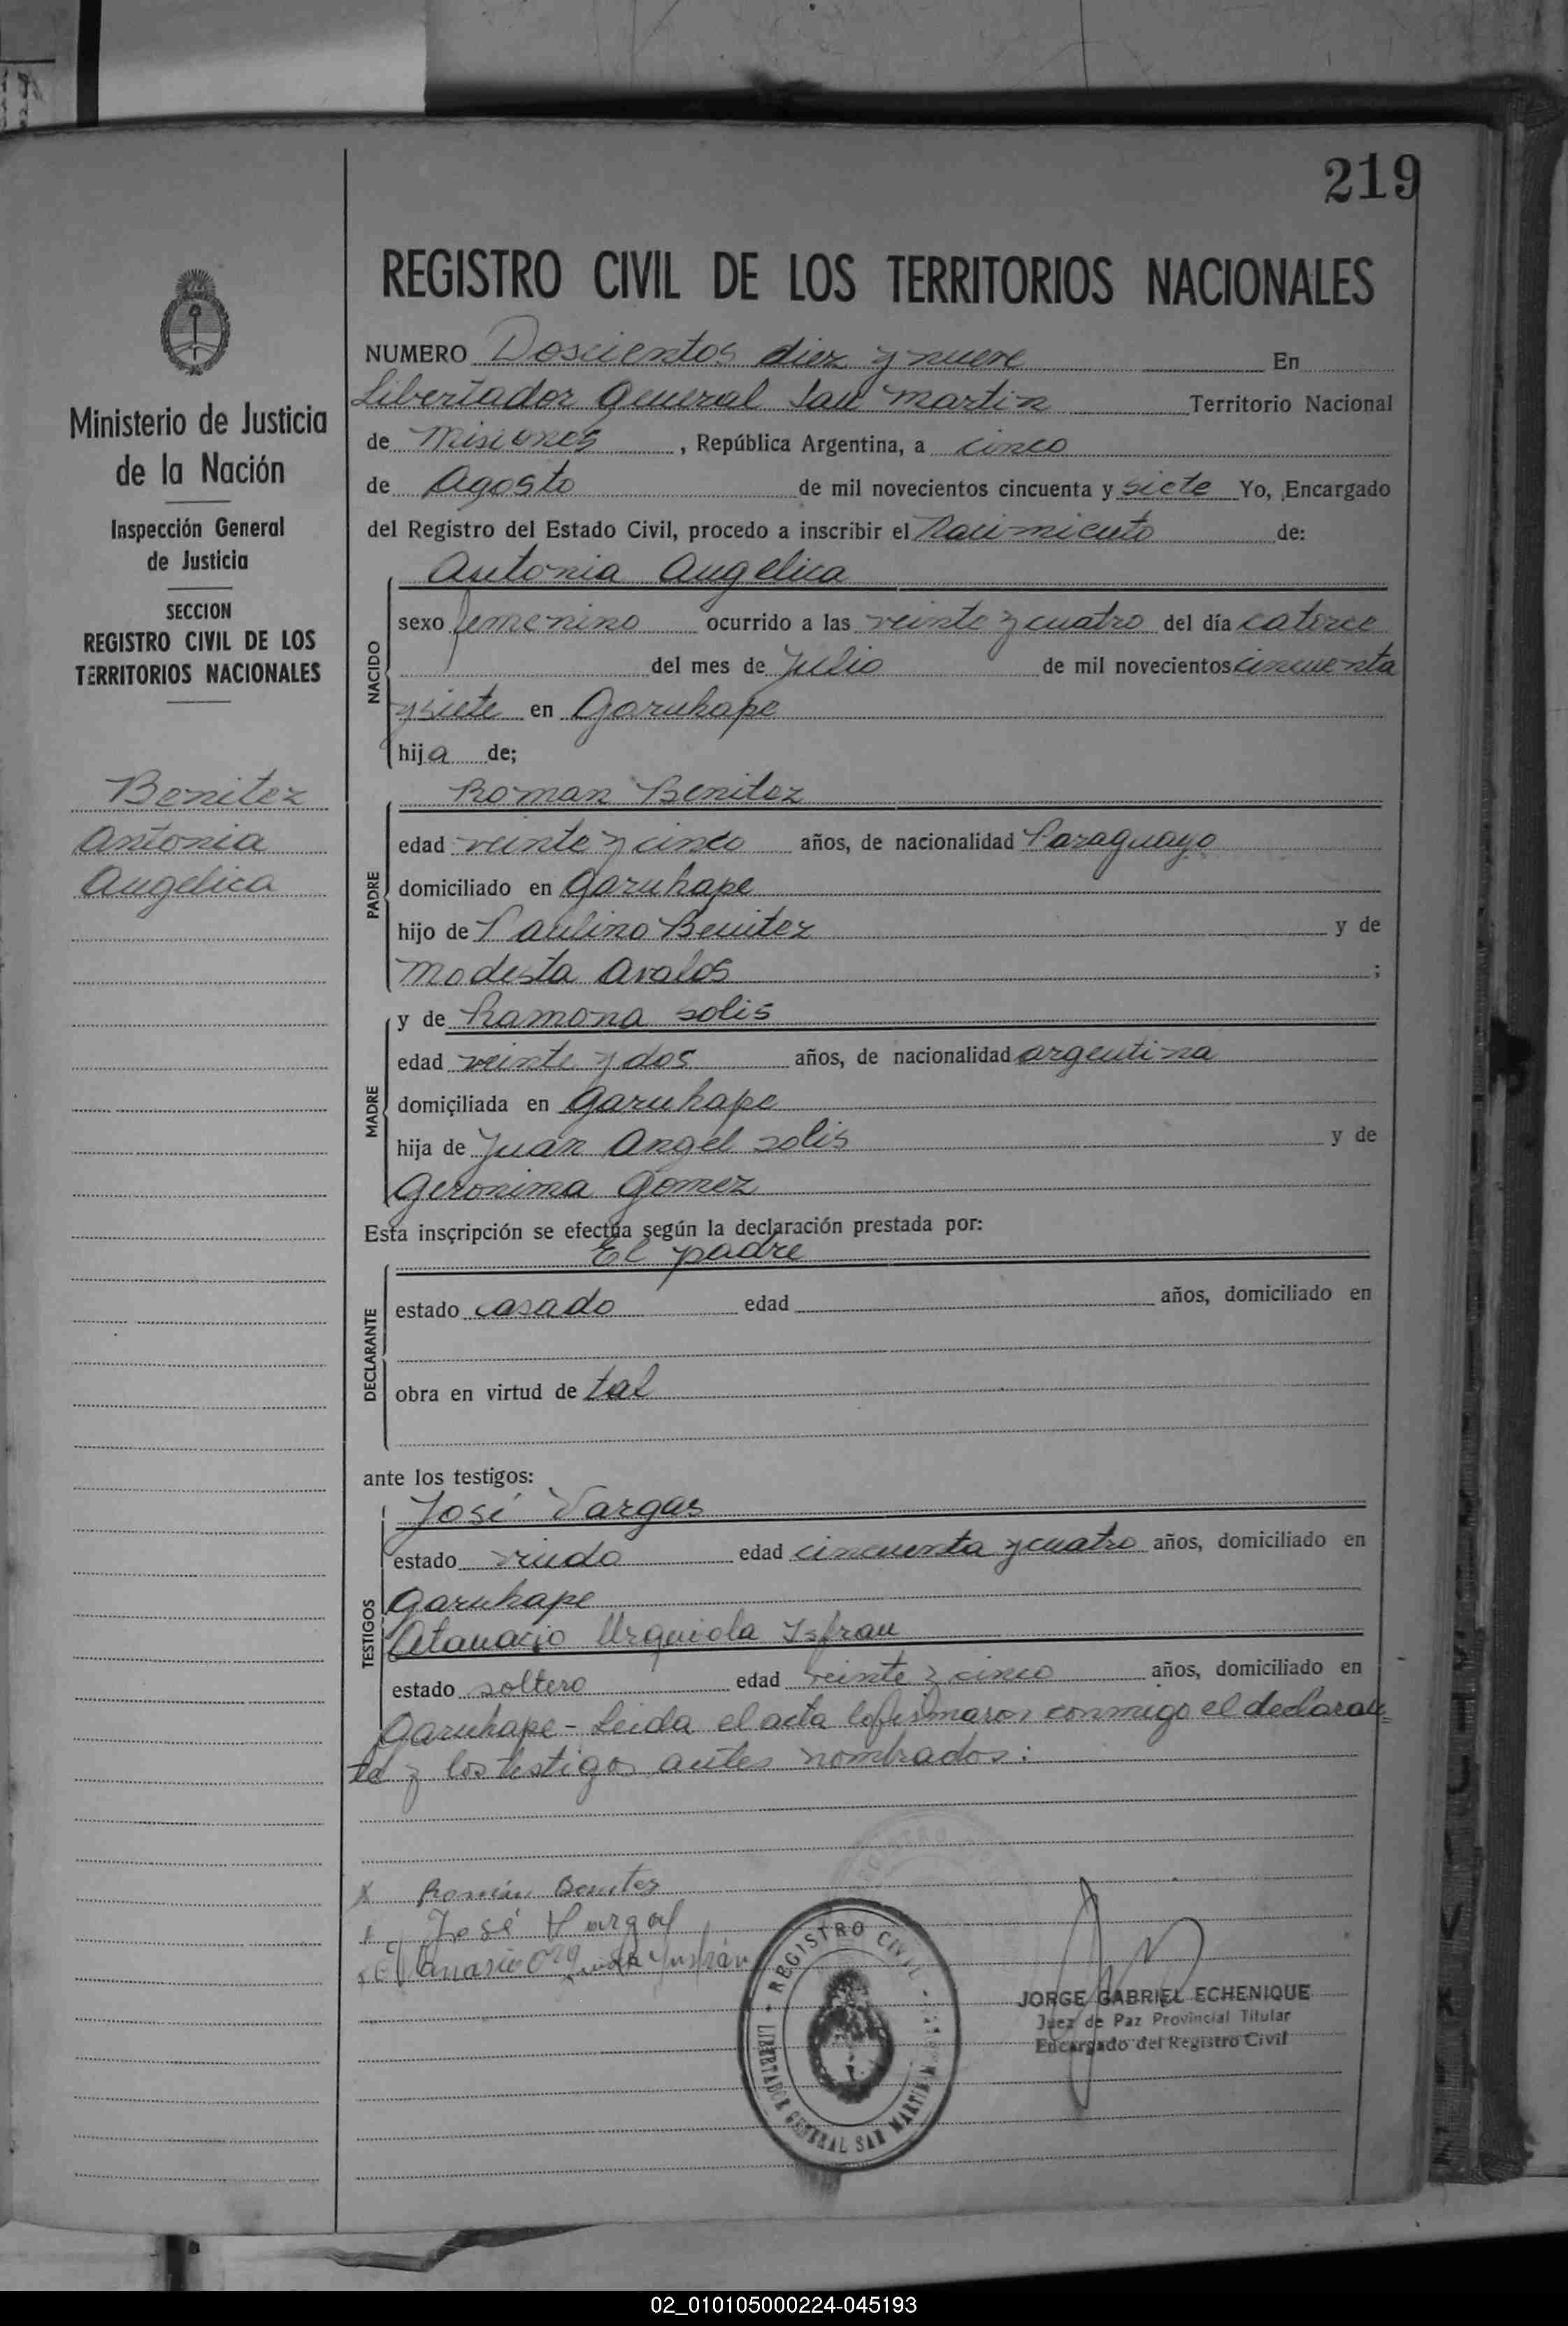 219
REGISTRO CIVIL DE LOS TERRITORIOS NACIONALES
Ministerio de Justicia
de la Nación
Inspección General
de Justicia
SECCION
REGISTRO CIVIL DE LOS
TERRITORIOS NACIONALES
Benitez
Antonia
Angelica
NUMERO Doscientos diez y nueve En
Libertador General San Martin Territorio Nacional
de Misiones, República Argentina, a cinco
de Agosto de mil novecientos cincuenta y siete Yo, Encargado
del Registro del Estado Civil, procedo a inscribir el Nacimiento de:
NACIDO
Antonia Angelica
sexo femenino ocurrido a las veinte y cuatro del día catorce
del mes de Julio de mil novecientos cincuenta
y siete en Garuhape
hija de;
PADRE
Roman Benitez
edad veinte y cinco años, de nacionalidad Paraguayo
domiciliado en Garuhape
hijo de Paulino Benitez y de
Modesta Avalos ;
MADRE
y de Ramona Solis
edad veinte y dos años, de nacionalidad argentina
domiciliada en Garuhape
hija de Juan Angel Solis y de
Geronima Gomez
Esta inscripción se efectúa según la declaración prestada por:
DECLARANTE
El padre
estado casado edad años, domiciliado en
obra en virtud de tal
ante los testigos:
TESTIGOS
José Vargas
estado viudo edad cincuenta y cuatro años, domiciliado en
Garuhape
Atanacio Urquiola Isfran
estado soltero edad veinte y cinco años, domiciliado en
Garuhape - Leida el acta la firmaron conmigo el declaran=
te y los testigos antes nombrados:
X Román Benitez
José Vargas
REGISTRO CIVIL
LIBERTADOR GENERAL SAN MARTIN
JORGE GABRIEL ECHENIQUE
Juez de Paz Provincial Titular
Encargado del Registro Civil
02_010105000224-045193